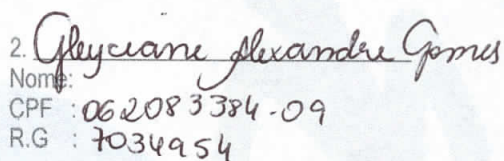 2. Gleyciane Alexandre Gomes
Nome:
CPF : 062083384-09
R.G : 7034954